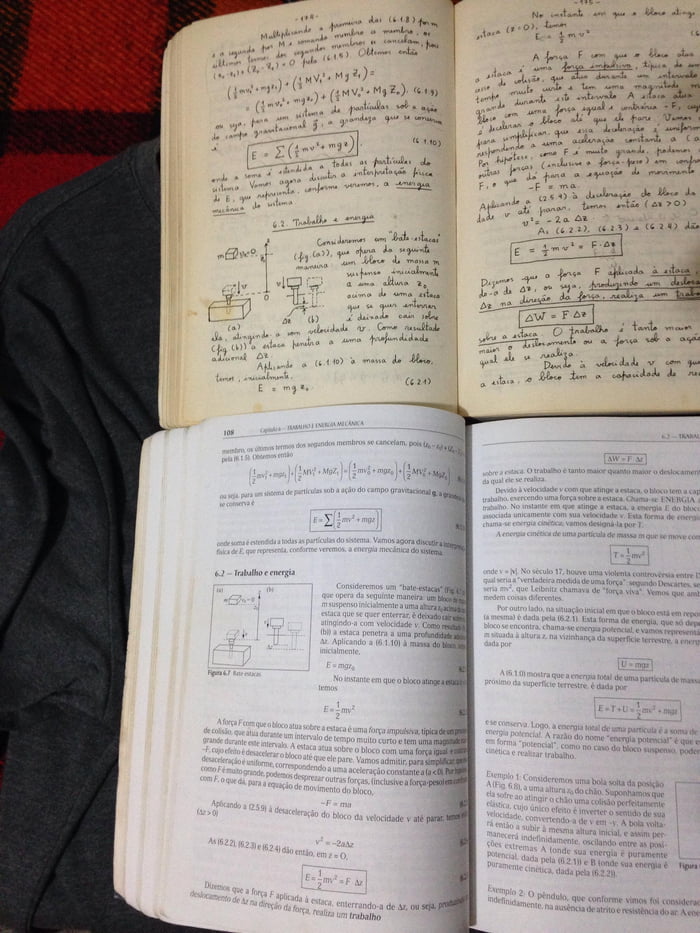 - 174 -
Multiplicando a primeira das (6.1.8) por m
e a segunda por M e somando membro a membro, os
últimos termos dos segundos membros se cancelam, pois
(z₀-z₁)+(Z₀-Z₁) = 0 pela (6.1.5). Obtemos então
(½mv₁²+mgz₁) + (½MV₁²+MgZ₁) =
= (½mv₀²+mgz₀) + (½MV₀²+MgZ₀). (6.1.9)
ou seja, para um sistema de partículas sob a ação
do campo gravitacional g, a grandeza que se conserva
é
E = Σ(½mv²+mgz) (6.1.10)
onde a soma é estendida a todas as partículas do
sistema. Vamos agora discutir a interpretação física
de E, que representa, conforme veremos, a energia
mecânica do sistema.
6.2. Trabalho e energia
Consideremos um "bate-estacas"
(fig.(a)), que opera da seguinte
maneira: um bloco de massa m
suspenso inicialmente
a uma altura z₀
acima de uma estaca
que se quer enterrar,
é deixado cair sobre
ela, atingindo-a com velocidade v. Como resultado
(fig.(b)) a estaca penetra a uma profundidade
adicional Δz.
Aplicando a (6.1.10) à massa do bloco,
temos, inicialmente,
E = mgz₀. (6.2.1)
m
v₀=0
z
z₀
0
v
Δz
(a)
(b)
- 175 -
No instante em que o bloco atinge
estaca (z=0), temos
E = ½mv²
A força F com que o bloco atua
a estaca é uma força impulsiva, típica de um
de colisão, que atua durante um intervalo
tempo muito curto e tem uma magnitude
grande durante este intervalo. A estaca atua
bloco com uma força igual e contrária -F,
é desacelerar o bloco até que ele pare. Vamos
para simplificar, que essa desaceleração é uniforme
respondendo a uma aceleração constante a
Por hipótese, como F é muito grande, podemos
outras forças (inclusive a força-peso) em
F, o que dá para a equação de movimento
-F = ma.
Aplicando a (2.5.9) à desaceleração do bloco da
dade v até parar, temos então (Δz>0)
v² = -2aΔz
As (6.2.2), (6.2.3) e (6.2.4) dão
E = ½mv² = F·Δz
Dizemos que a força F aplicada à estaca
do-a de Δz, ou seja, produzindo um
Δz na direção da força, realiza um
ΔW = FΔz
sobre a estaca. O trabalho é tanto
maior o deslocamento ou a força sob a ação
qual ele se realiza.
Devido à velocidade v com que
a estaca, o bloco tem a capacidade de
108 Capítulo 6 — TRABALHO E ENERGIA MECÂNICA
membro, os últimos termos dos segundos membros se cancelam, pois
pela (6.1.5). Obtemos então
(½mv₁²+mgz₁)+(½MV₁²+MgZ₁)=(½mv₀²+mgz₀)+(½MV₀²+MgZ₀)
ou seja, para um sistema de partículas sob a ação do campo gravitacional g, a grandeza
se conserva é
E=Σ(½mv²+mgz)
onde soma é estendida a todas as partículas do sistema. Vamos agora discutir a
física de E, que representa, conforme veremos, a energia mecânica do sistema.
6.2 – Trabalho e energia
(a)
(b)
Figura 6.7 Bate estacas
Consideremos um "bate-estacas"
que opera da seguinte maneira: um bloco de
m suspenso inicialmente a uma altura z₀
estaca que se quer enterrar, é deixado cair
atingindo-a com velocidade v. Como
(b)) a estaca penetra a uma profundidade
Δz. Aplicando a (6.1.10) à massa do bloco,
inicialmente,
E = mgz₀
No instante em que o bloco atinge a estaca
temos
E=½mv²
A força F com que o bloco atua sobre a estaca é uma força impulsiva, típica de um
de colisão, que atua durante um intervalo de tempo muito curto e tem uma magnitude
grande durante este intervalo. A estaca atua sobre o bloco com uma força igual e
-F, cujo efeito é desacelerar o bloco até que ele pare. Vamos admitir, para simplificar, que
desaceleração é uniforme, correspondendo a uma aceleração constante a (a < 0).
como F é muito grande, podemos desprezar outras forças, (inclusive a força-peso) em
com F, o que dá, para a equação de movimento do bloco,
–F = ma
Aplicando a (2.5.9) à desaceleração do bloco da velocidade v até parar, temos
(Δz > 0)
v² = –2aΔz
As (6.2.2), (6.2.3) e (6.2.4) dão então, em z = 0,
E=½mv²=F Δz
Dizemos que a força F aplicada à estaca, enterrando-a de Δz, ou seja,
deslocamento de Δz na direção da força, realiza um trabalho
6.2 —
ΔW = F Δz
sobre a estaca. O trabalho é tanto maior quanto maior o deslocamento
da qual ele se realiza.
Devido à velocidade v com que atinge a estaca, o bloco tem a
trabalho, exercendo uma força sobre a estaca. Chama-se ENERGIA
trabalho. No instante em que atinge a estaca, a energia E do bloco
associada unicamente com sua velocidade v. Esta forma de energia
chama-se energia cinética; vamos designá-la por T.
A energia cinética de uma partícula de massa m que se move com
T=½mv²
onde v = |v|. No século 17, houve uma violenta controvérsia entre
qual seria a "verdadeira medida de uma força": segundo Descartes,
seria mv², que Leibnitz chamava de "força viva". Vemos que
medem coisas diferentes.
Por outro lado, na situação inicial em que o bloco está em
(a mesma) é dada pela (6.2.1). Esta forma de energia, que só
bloco se encontra, chama-se energia potencial, e vamos
m situada à altura z, na vizinhança da superfície terrestre, a
dada por
U = mgz
A (6.1.10) mostra que a energia total de uma partícula de massa
próximo da superfície terrestre, é dada por
E=T+U=½mv²+mgz
e se conserva. Logo, a energia total de uma partícula é a soma de
energia potencial. A razão do nome "energia potencial" é que
em forma "potencial", como no caso do bloco suspenso,
cinética e realizar trabalho.
Exemplo 1: Consideremos uma bola solta da posição
A (Fig. 6.8), a uma altura z₀ do chão. Suponhamos que
ela sofre ao atingir o chão uma colisão perfeitamente
elástica, cujo único efeito é inverter o sentido de sua
velocidade, convertendo-a de v em -v. A bola volta-
rá então a subir à mesma altura inicial, e assim per-
manecerá indefinidamente, oscilando entre as posi-
ções extremas A (onde sua energia é puramente
potencial, dada pela (6.2.1)) e B (onde sua energia é
puramente cinética, dada pela (6.2.2)).
Exemplo 2: O pêndulo, que conforme vimos foi
indefinidamente, na ausência de atrito e resistência do ar. A